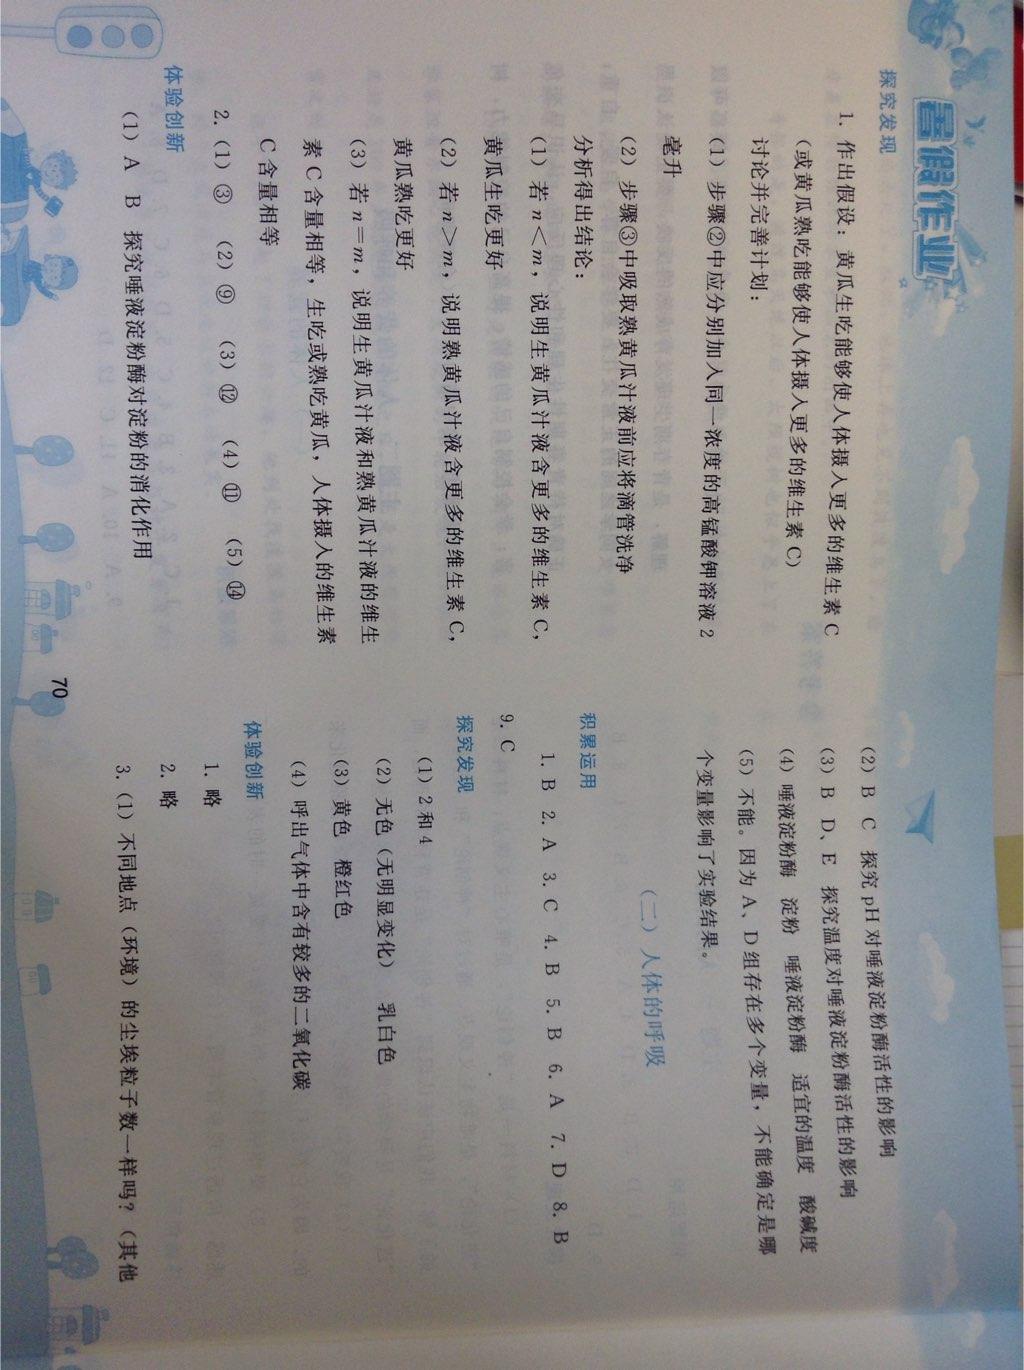 暑假作业
探究发现
1. 作出假设：黄瓜生吃能够使人体摄入更多的维生素 C
（或黄瓜熟吃能够使人体摄入更多的维生素 C）
讨论并完善计划：
（1）步骤②中应分别加入同一浓度的高锰酸钾溶液 2
毫升
（2）步骤③中吸取熟黄瓜汁液前应将滴管洗净
分析得出结论：
（1）若 n＜m，说明生黄瓜汁液含更多的维生素 C，
黄瓜生吃更好
（2）若 n＞m，说明熟黄瓜汁液含更多的维生素 C，
黄瓜熟吃更好
（3）若 n＝m，说明生黄瓜汁液和熟黄瓜汁液的维生
素 C 含量相等，生吃或熟吃黄瓜，人体摄入的维生素
C 含量相等
2.（1）③ （2）⑨ （3）⑫ （4）⑪ （5）⑭
体验创新
（1）A B 探究唾液淀粉酶对淀粉的消化作用
（2）B C 探究 pH 对唾液淀粉酶活性的影响
（3）B D、E 探究温度对唾液淀粉酶活性的影响
（4）唾液淀粉酶 淀粉 唾液淀粉酶 适宜的温度 酸碱度
（5）不能。因为 A、D 组存在多个变量，不能确定是哪
个变量影响了实验结果。
（二）人体的呼吸
积累运用
1. B 2. A 3. C 4. B 5. B 6. A 7. D 8. B
9. C
探究发现
（1）2 和 4
（2）无色（无明显变化） 乳白色
（3）黄色 橙红色
（4）呼出气体中含有较多的二氧化碳
体验创新
1. 略
2. 略
3.（1）不同地点（环境）的尘埃粒子数一样吗？（其他
70